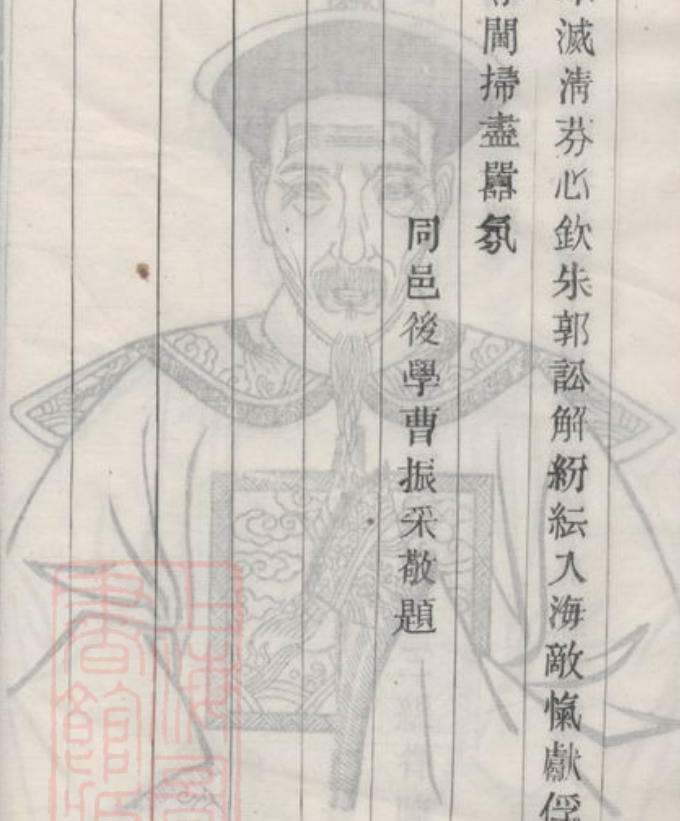 滅清芬心欽朱郭訟解紛紜入海敵愾獻俘
閫掃盡囂氛
同邑後學曹振采敬題
上海圖
書館所